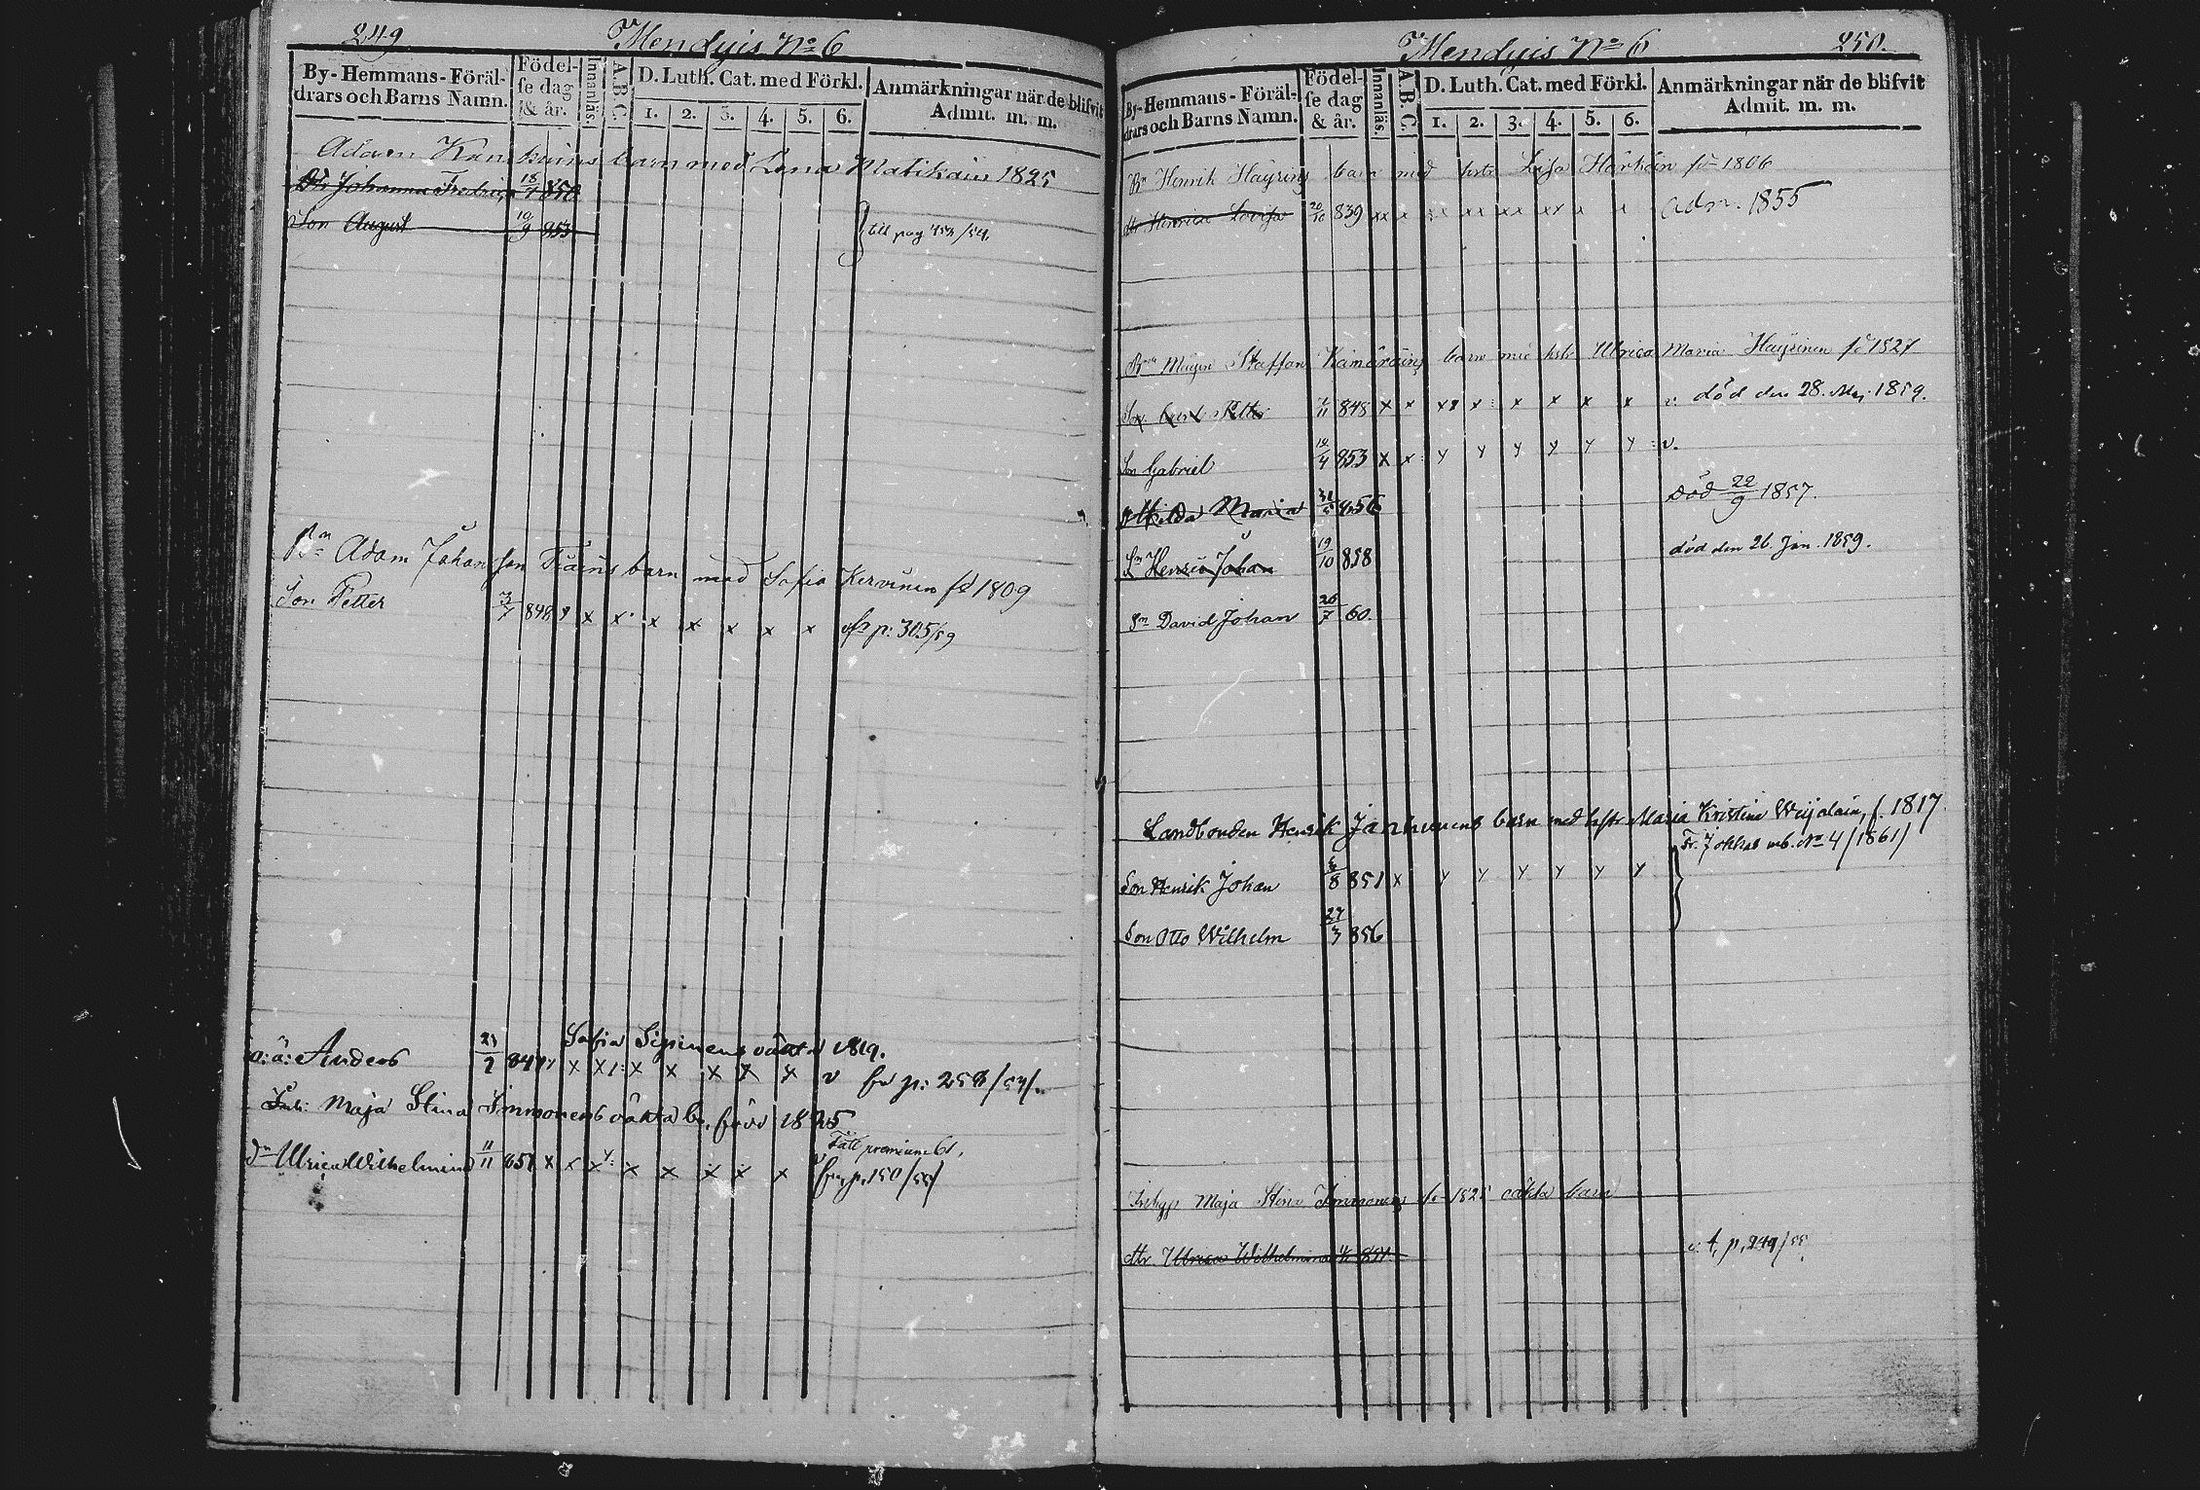 249
Mendyis No 6
By-Hemmans-Föräl-
drars och Barns Namn.
Födel-
se dag
& år.
Innanläs.
A. B. C.
D. Luth. Cat. med Förkl.
1. 2. 3. 4. 5. 6.
Anmärkningar när de blifvit
Admit. m. m.
Adam barn med Lena Matikain 1825
Dr Johanna Fredrica 18/7 850
Son August 10/9 853 till pag
Bn Adam Johansson barn med Sofia Kervinen fd 1809
Son Petter 3/7 848 x x x x x x x p: 305/59
Sofia oäkta 1819.
o: ä: Anders 23/2 847 x x x x x x x v fr p:
Maja Stina Immonens oäkta b. född 1825
Fått premium 61.
dr Ulrica Wilhelmina 11/11 851 x x x x x x x x fr. p. 150/55/
Mendyis No 6
250.
By-Hemmans-Föräl-
drars och Barns Namn.
Födel-
se dag
& år.
Innanläs.
A. B. C.
D. Luth. Cat. med Förkl.
1. 2. 3. 4. 5. 6.
Anmärkningar när de blifvit
Admit. m. m.
Bn Henrik Häyrins barn med hstr Lisa Härkäin fd 1806
dtr Henrica Lovisa 20/10 839 xx x xx xx xx xx x x adm. 1855
Staffan barn med hstr Ulrica Maria Häyrinen fd 1827
Son Petter 2/11 848 x x x x x x x x död den 28. Maj. 1859.
Son Gabriel 10/4 853 x x y y y y y y v.
Hilda Maria 856 död 22/9 1857.
Sn Henric Johan 19/10 858 död den 26 Jan. 1859.
Sn David Johan 26/7 60.
Landbonden Henrik Janhunens barn med hstr Maria Kristina Weijalain, f. 1817.
Fr. Jokkas No 4/1861/
Son Henrik Johan 6/8 851 x y y y y y y
Son Otto Wilhelm 27/3 856
Maja Stina Immonens fd 1825 oäkta barn
dtr. Ulrica Wilhelmina 851. t. p. 249/55